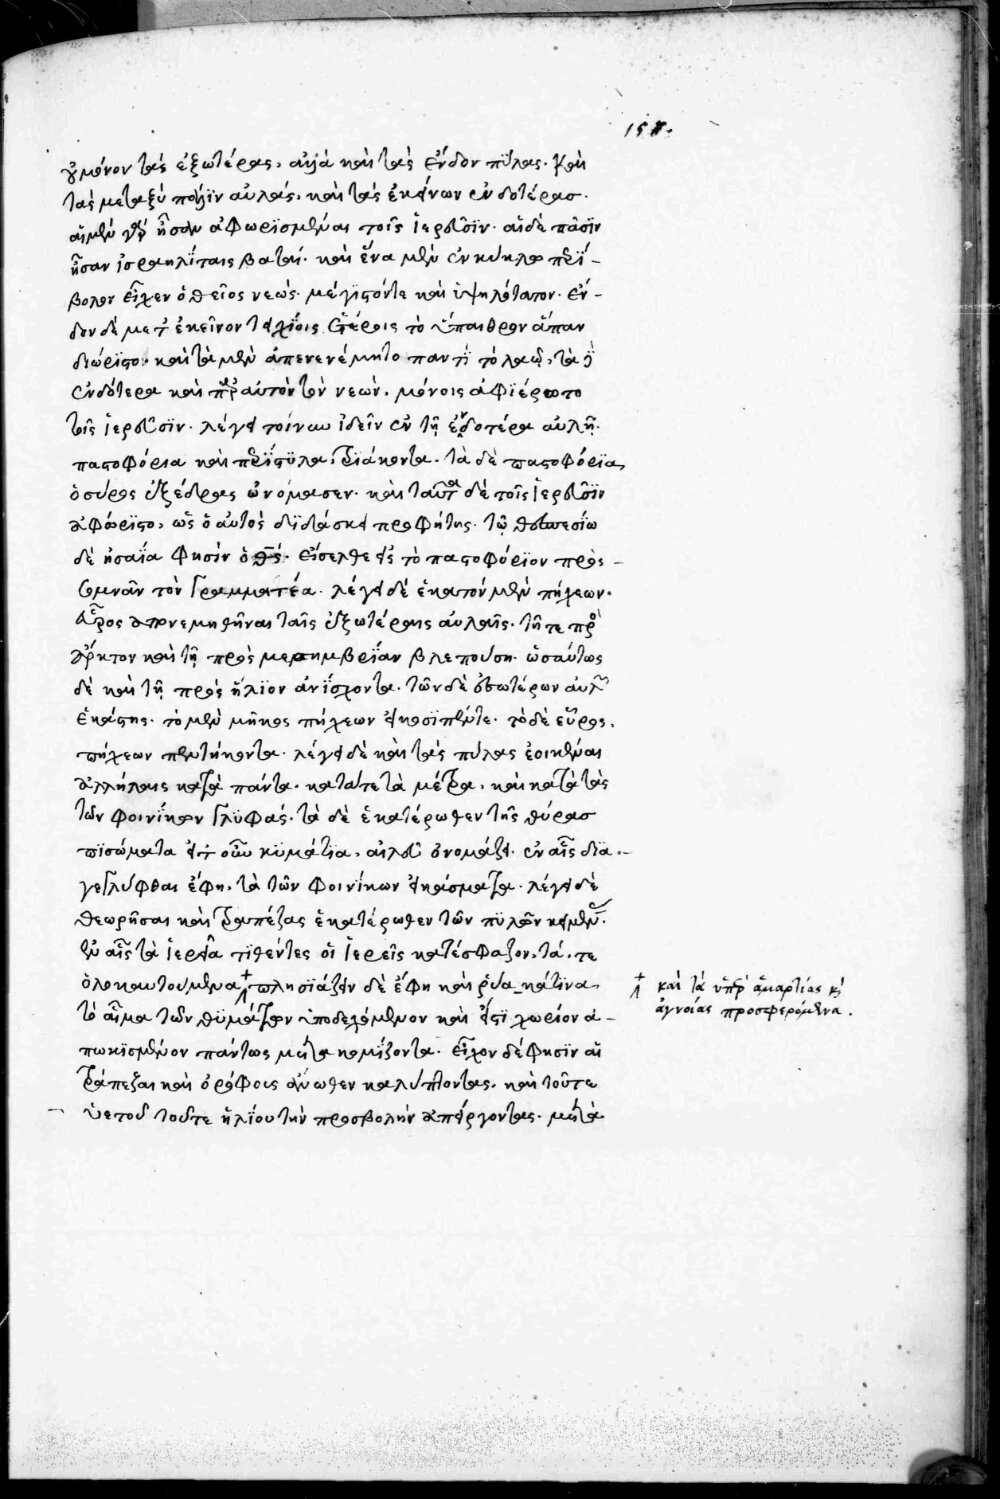 158.
οὐ μόνον τὰς ἐξωτέρας, ἀλλὰ καὶ τὰς ἔνδον πύλας. καὶ
τὰς μεταξὺ πάλιν αὐλάς, καὶ τὰς ἐκείνων ἐνδοτέρας.
αἱ μὲν γὰρ ἦσαν ἀφωρισμέναι τοῖς ἱερεῦσιν. αἱ δὲ πᾶσιν
ἦσαν ἰσραηλίταις βαταί. καὶ ἕνα μὲν ἐν κύκλῳ περί-
βολον εἶχεν ὁ θεῖος νεώς. μέγιστόν τε καὶ ὑψηλότατον. ἔν-
δον δὲ μετ' ἐκεῖνον τειχίοις ἑτέροις τὸ ὕπαιθρον ἅπαν
διώριστο. καὶ τὰ μὲν ἀπενενέμητο παντὶ τῷ λαῷ, τὰ δὲ
ἐνδότερα καὶ παρ' αὐτὸν τὸν νεών. μόνοις ἀφιέρωτο
τοῖς ἱερεῦσιν. λέγει τοίνυν ἰδεῖν ἐν τῇ ἐνδοτέρᾳ αὐλῇ.
παστοφόρια καὶ περίστυλα, τριάκοντα. τὰ δὲ παστοφόρια,
ὁ σύρος ἐξέδρας ὠνόμασεν. καὶ ταῦτα δὲ τοῖς ἱερεῦσιν
ἀφώριστο, ὡς ὁ αὐτὸς διδάσκει προφήτης. τῷ θεσπεσίῳ
δὲ ἡσαΐᾳ φησὶν ὁ θς. εἴσελθε εἰς τὸ παστοφόριον πρὸς
σομνᾶν τὸν γραμματέα. λέγει δὲ ἑκατὸν μὲν πήχεων.
εὖρος ἀπονεμηθῆναι ταῖς ἐξωτέραις αὐλαῖς. τῇ τε πρὸς
ἄρκτον καὶ τῇ πρὸς μεσημβρίαν βλεπούσῃ. ὡσαύτως
δὲ καὶ τῇ πρὸς ἥλιον ἀνίσχοντα. τῶν δὲ ἐσωτέρων αὐλῶν
ἑκάστης. τὸ μὲν μῆκος πήχεων εἰκοσιπέντε. τὸ δὲ εὖρος,
πήχεων πεντήκοντα. λέγει δὲ καὶ τὰς πύλας ἐοικέναι
ἀλλήλαις κατὰ πάντα. κατά τε τὰ μέτρα, καὶ κατὰ τὰς
τῶν φοινίκων γλυφάς. τὰ δὲ ἑκατέρωθεν τῆς θύρας
πισώματα εἴτ' οὖν κυμάτια, αἰλεῦ ὀνομάζει. ἐν αἷς δια-
γεγλύφθαι ἔφη, τὰ τῶν φοινίκων εἰκάσματα. λέγει δὲ
θεωρῆσαι καὶ τραπέζας ἑκατέρωθεν τῶν πυλῶν κειμένας.
ἐν αἷς τὰ ἱερεῖα τιθέντες οἱ ἱερεῖς κατέσφαζον, τά, τε
ὁλοκαυτούμενα, πλησιάζειν δὲ ἔφη καὶ ῥύακάτινα,
τὸ αἷμα τῶν θυμάτων ὑποδεχόμενον καὶ ἐπὶ χωρίον ἀ-
πῳκισμένον πάντως μετακομίζοντα. εἶχον δέ φησιν αἱ
τράπεζαι καὶ ὀρόφους ἄνωθεν καλύπτοντας. καὶ τοῦ τε
ὑετοῦ τοῦ τε ἡλίου τὴν προσβολὴν ἀπείργοντας. μετὰ
καὶ τὰ ὑπὲρ ἁμαρτίας κ
ἀγνοίας προσφερόμενα.